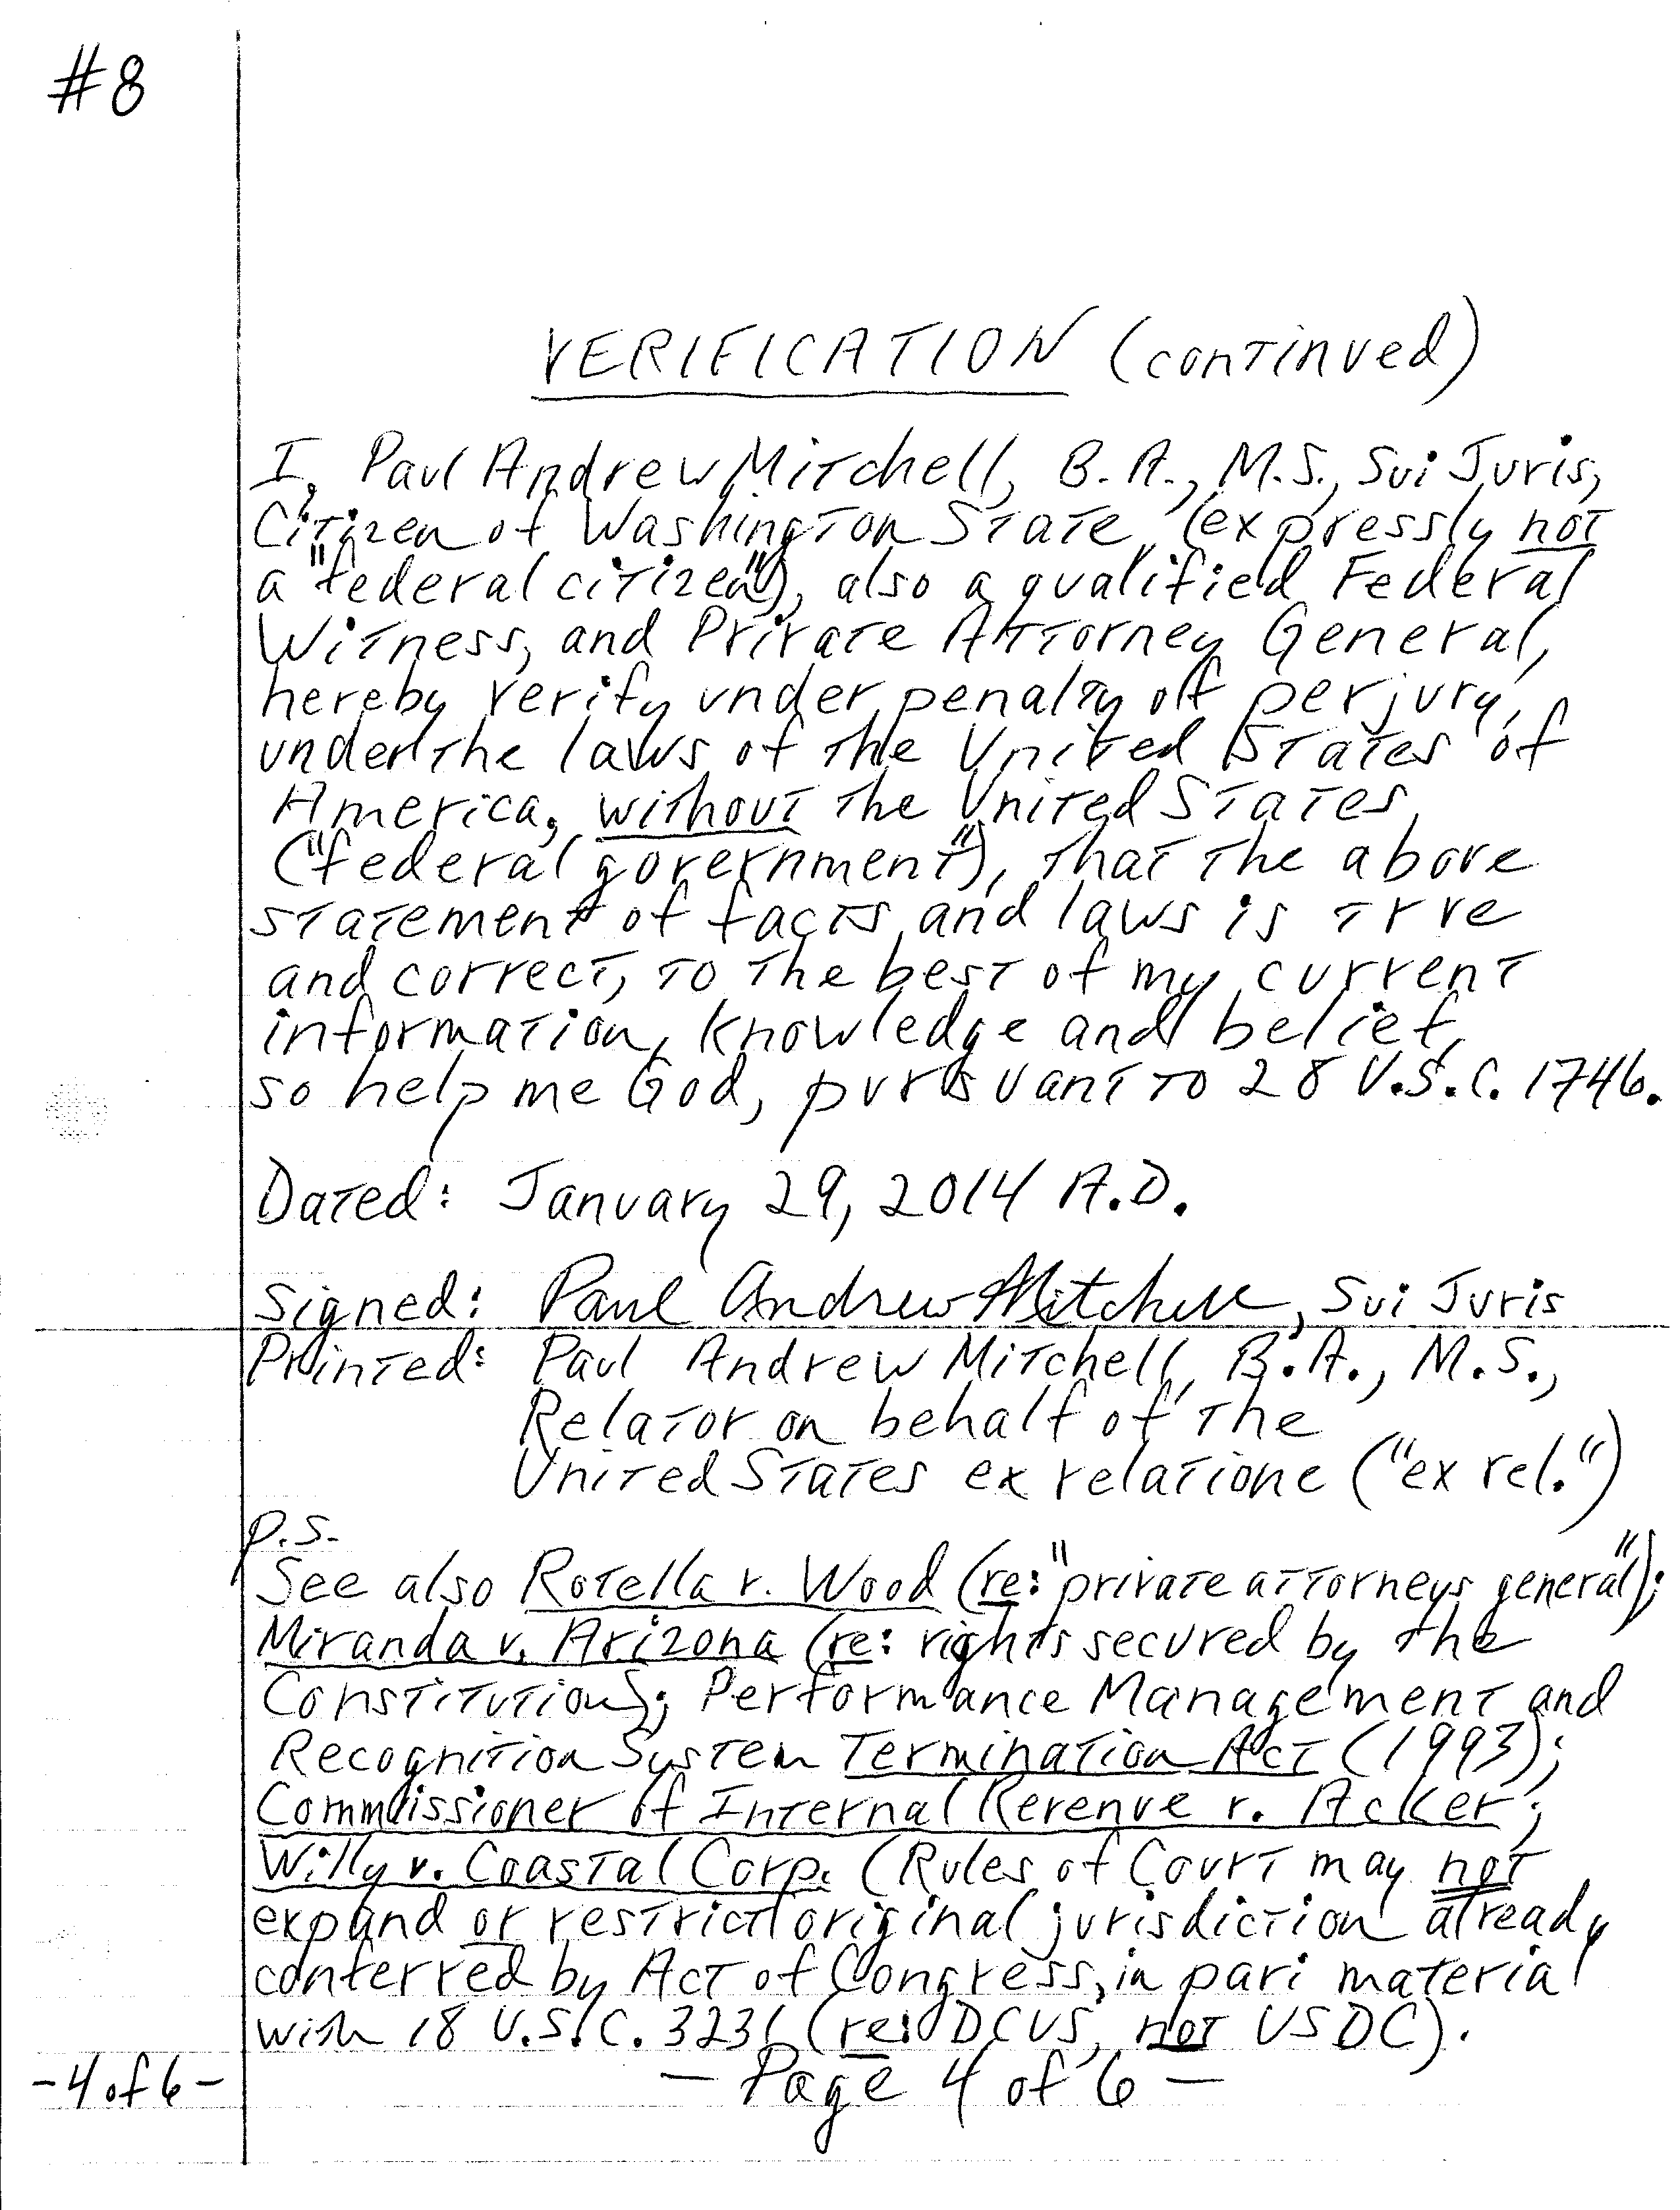 #8
VERIFICATION (continued)
I, Paul Andrew Mitchell, B.A., M.S., Sui Juris,
Citizen of Washington State (expressly not
a "federal citizen"), also a qualified Federal
Witness, and Private Attorney General,
hereby verify under penalty of perjury,
under the laws of the United States of
America, without the United States
("federal government"), that the above
statement of facts and laws is true
and correct, to the best of my current
information, knowledge and belief,
so help me God, pursuant to 28 U.S.C. 1746.
Dated: January 29, 2014 A.D.
Signed: Paul Andrew Mitchell, Sui Juris
Printed: Paul Andrew Mitchell, B.A., M.S.,
Relator on behalf of the
United States ex relatione ("ex rel.")
P.S.
See also Rotella v. Wood (re: "private attorneys general");
Miranda v. Arizona (re: rights secured by the
Constitution); Performance Management and
Recognition System Termination Act (1993);
Commissioner of Internal Revenue v. Acker;
Willy v. Coastal Corp. (Rules of Court may not
expand or restrict original jurisdiction already
conferred by Act of Congress, in pari materia
with 18 U.S.C. 3231 (re: DCUS, not USDC).
-4 of 6-
— Page 4 of 6 —